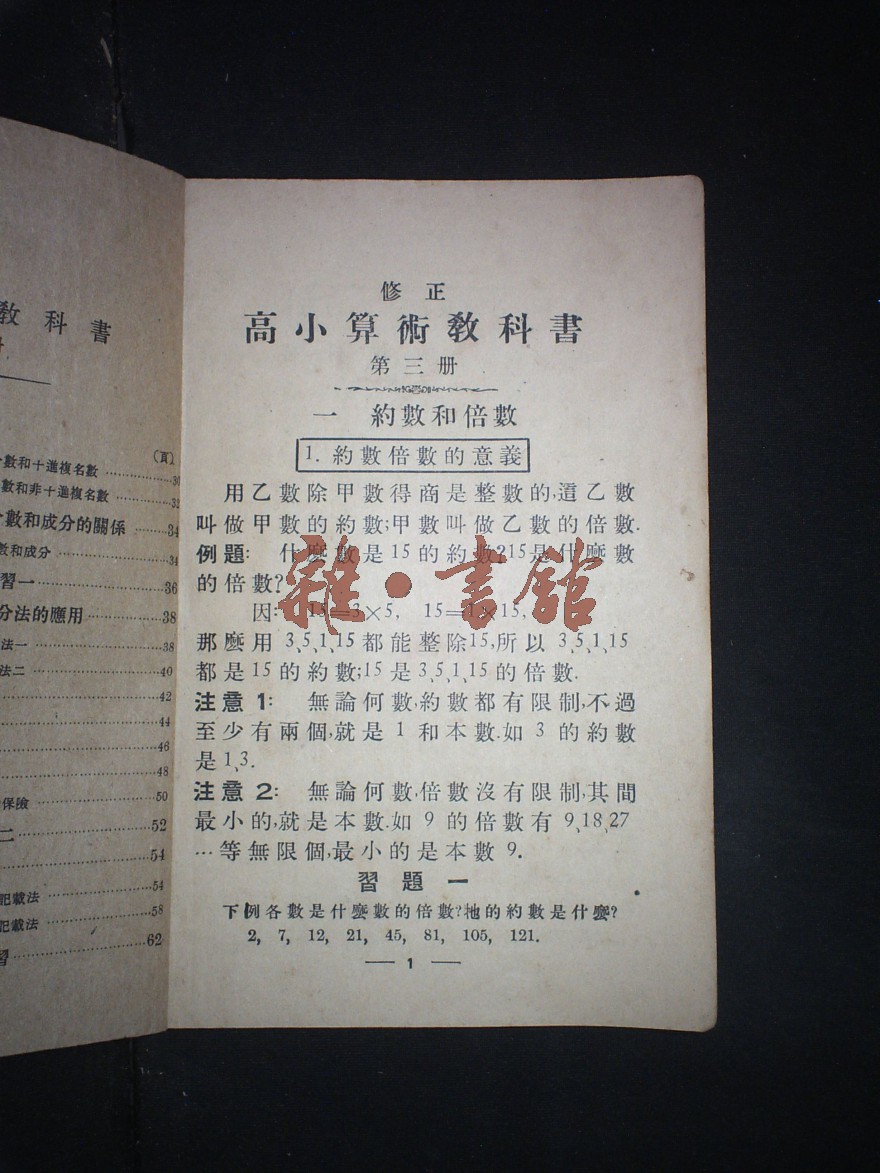 教科書
(頁)
數和十進複名數 30
數和非十進複名數 32
數和成分的關係 34
數和成分 34
習一 36
分法的應用 38
法一 38
法二 40
42
44
46
48
保險 50
二 52
54
記載法 54
記載法 58
習 62
修正
高小算術教科書
第三册
一 約數和倍數
1. 約數倍數的意義
用乙數除甲數得商是整數的,這乙數
叫做甲數的約數;甲數叫做乙數的倍數.
例題: 什麼數是15的約數?15是什麼數
的倍數?
因: 15=3×5, 15=1×15,
那麼用3、5、1、15都能整除15,所以3、5、1、15
都是15的約數;15是3、5、1、15的倍數.
注意1: 無論何數,約數都有限制,不過
至少有兩個,就是1和本數.如3的約數
是1、3.
注意2: 無論何數,倍數沒有限制,其間
最小的,就是本數.如9的倍數有9、18、27
…等無限個,最小的是本數9.
習題一
下例各數是什麼數的倍數?牠的約數是什麼?
2, 7, 12, 21, 45, 81, 105, 121.
— 1 —
雜·書館